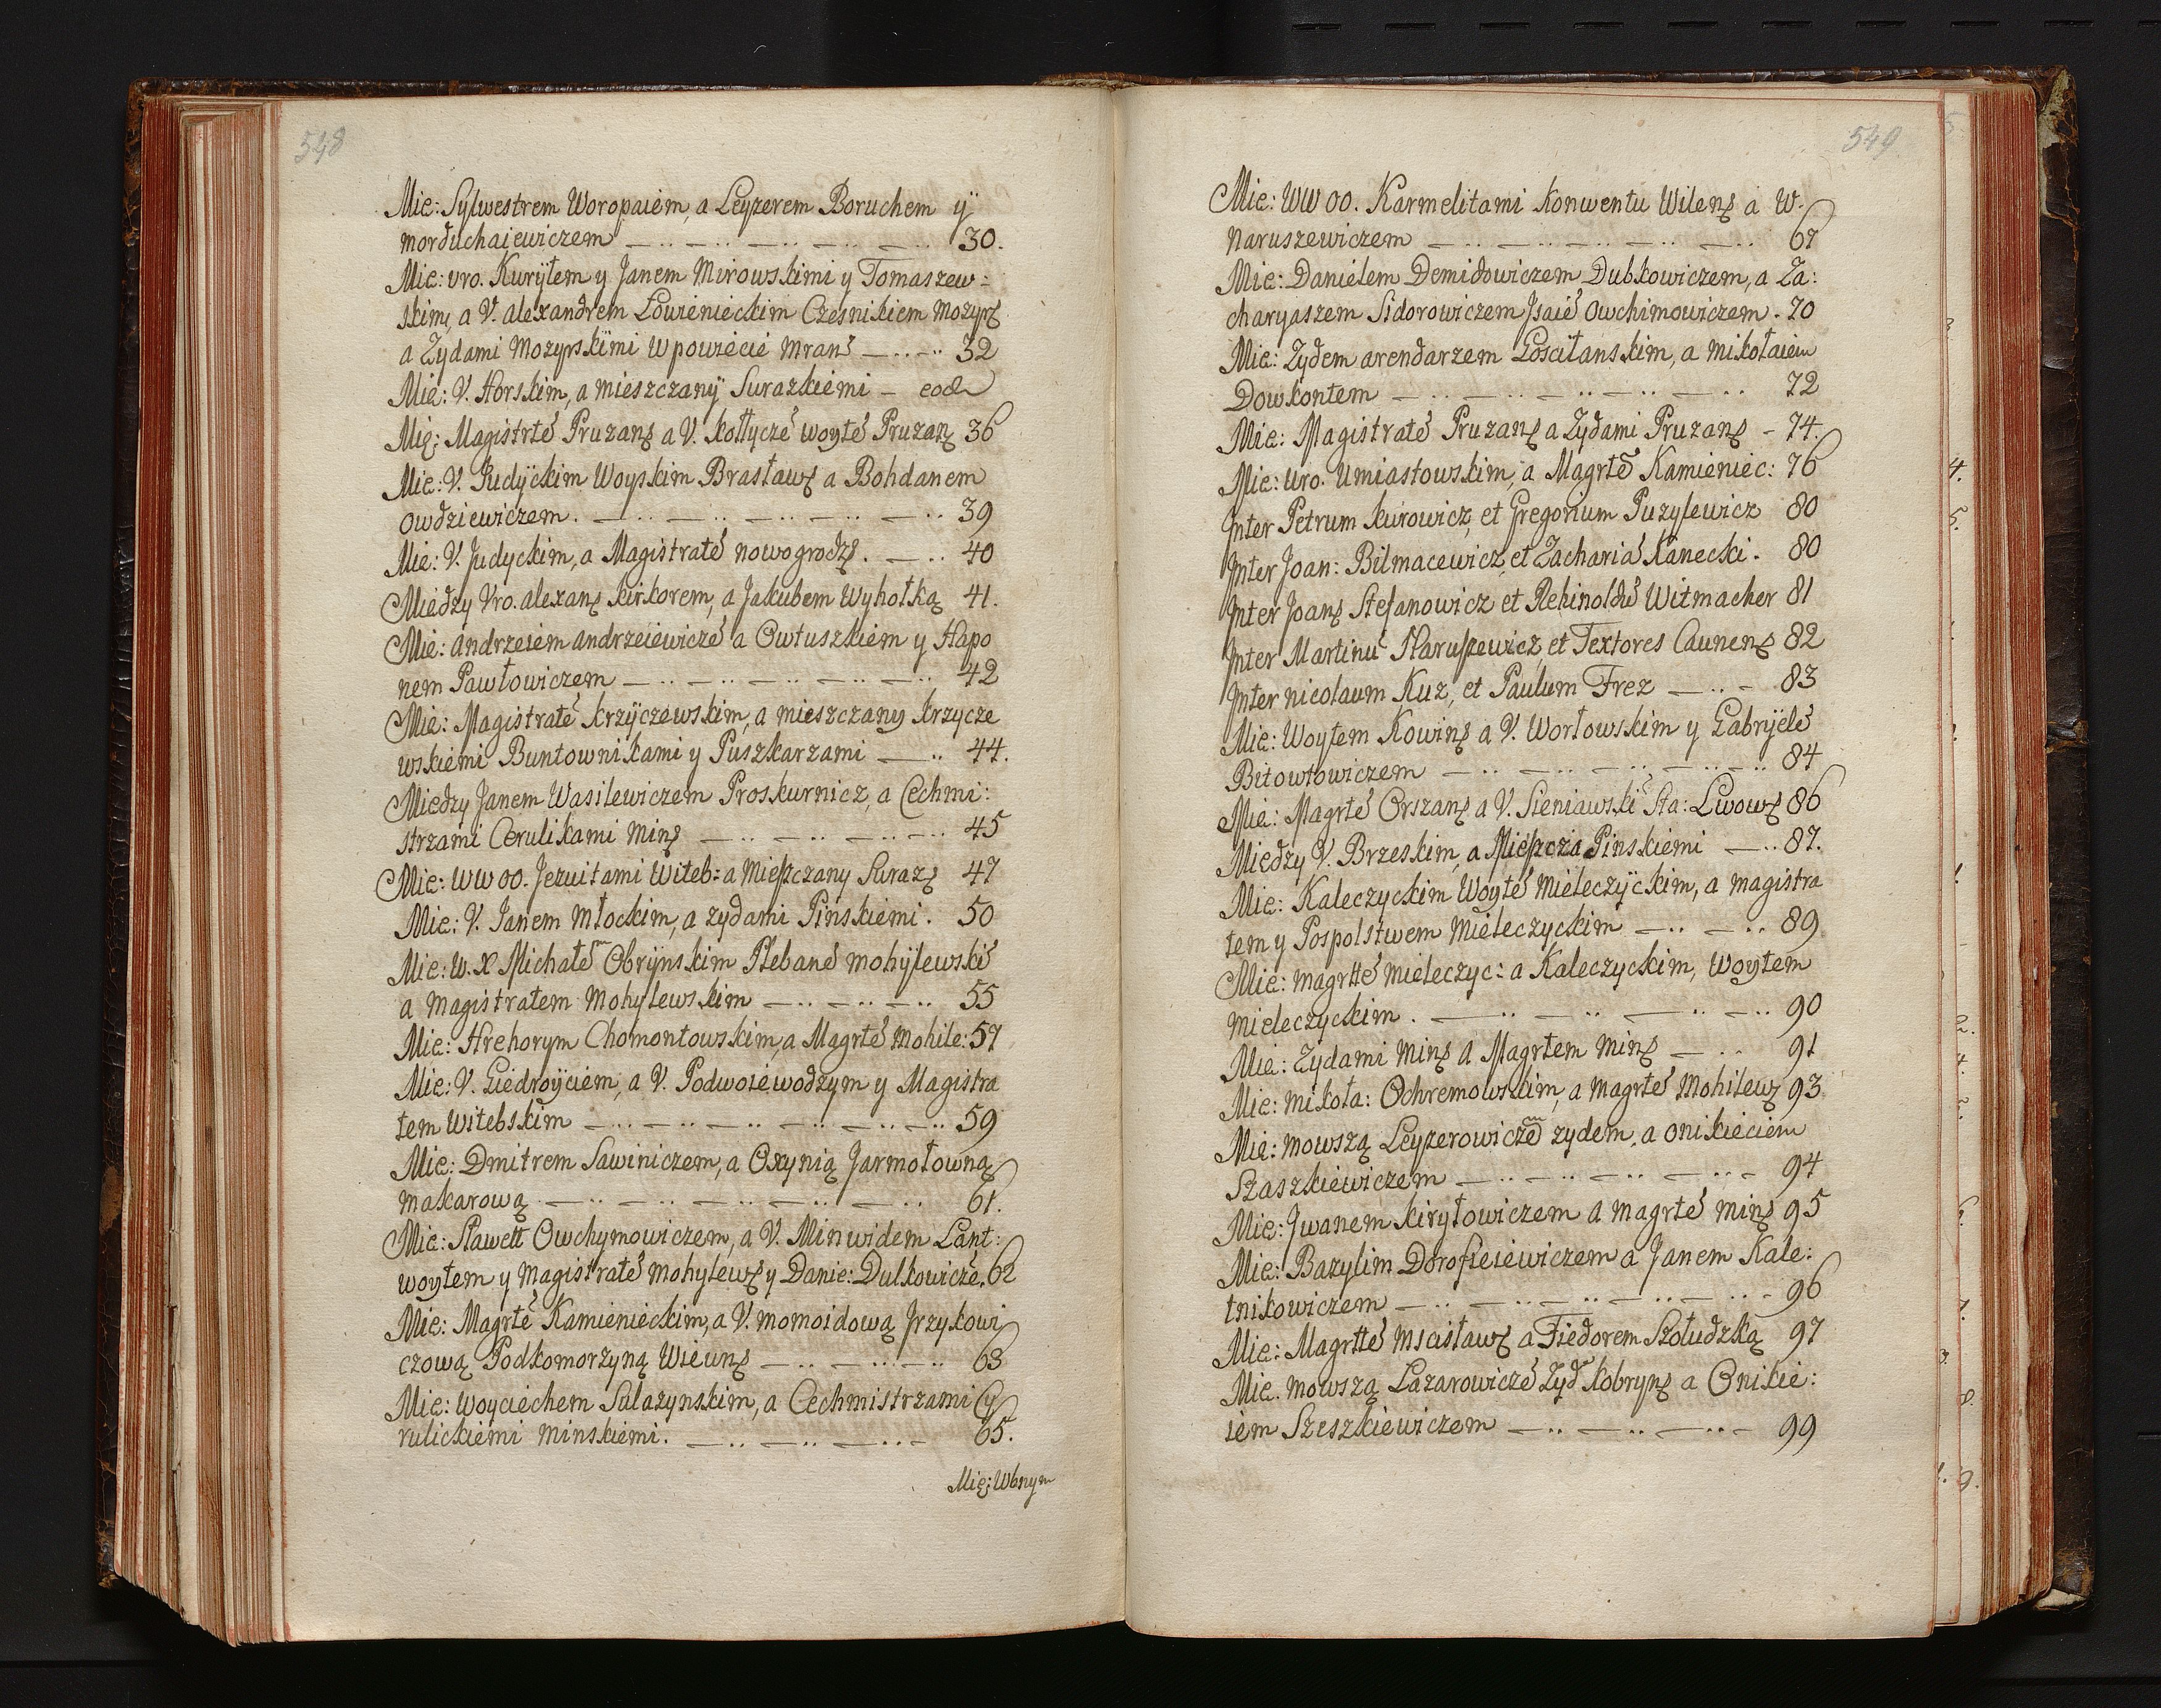 548
Mie: Sylwestrem Woropaiem, a Leyzerem Boruchem ÿ
morduchaiewiczem 30.
Mie: vro. Kurÿłem y Janem Mirowskimi y Tomaszew-
skim, a V. alexandrem Łowienieckim Czesnikiem mozyrs
a Zydami Mozyrskimi w powiecie mran 32
Mie: V. Horskim, a mieszczanÿ Surazkiemi - eod
Mie: Magistrtē Pruzans a V. Kołłyczē woytē Pruzans 36
Mie: V. Judÿckim Woyskim Brasławs a Bohdanem
owdziewiczem. 39
Mie: V. Judyckim, a Magistratē nowogrodzs. 40
Miedzy Vro. alexans kirkorem, a Jakubem Wyhotką 41.
Mie: andrzeiem andrzeiewiczē a Owtuszkiem y Hapo
nem Pawłowiczem 42
Mie: Magistratē krzÿczewskim, a mieszczany krzycze
wskiemi Buntownikami y Puszkarzami 44.
Miedzy Janem Wasilewiczem Proskurnicz, a Cechmi:
strzami Cerulikami mins 45
Mie: WW OO. Jezuitami Witeb: a mieszczany Surazs 47
Mie: V. Janem młockim, a zydami Pinskiemi. 50
Mie: W. X Michałē Obrÿnskim Plebanē mohÿlewskī
a magistratem mohylewskim 55
Mie: Hrehorym Chomontowskim, a Magrtē mohile: 57
Mie: V. Giedroÿciem, a V. Podwoiewodzym y Magistra
tem witebskim 59
Mie: Dmitrem Sawiniczem, a Oxynią Jarmołowną
makarową 61.
Mie: Sławett Owchymowiczem, a V. Minwidem Lant:
woytem y magistratē mohylews y Danie: Dulkowiczē. 62
Mie: Magrtē Kamienieckim, a V. momoidową Jrzykowi
czową Podkomorzyną Wieuns 63
Mie: Woyciechem Salazynskim, a Cechmistrzami Cy
rulickiemi minskiemi. 65.
Mie: Wbnym
549
Mie: WW OO. Karmelitami konwentu Wilens a W.
naruszewiczem 67
Mie: Danielem Demidowiczem Dubkowiczem, a Za:
charyaszem Sidorowiczem Jsaiē Owchimowiczem. 70
Mie: Zydem arendarzem Goscitanskim, a mikołaiem
Dowkontem 72
Mie: Magistratē Pruzans a Zydami Pruzans - 74.
Mie: uro. umiastowskim, a Magrtē Kamieniec: 76
Jnter Petrum kurowicz, et Gregorium Puzylewicz 80
Jnter Joan: Bilmacewicz, et Zachariā Kanecki. 80
Jnter Joans Stefanowicz et Rehinoldū Witmacher 81
Jnter Martinū Haruszewicz, et Textores Caunens 82
Jnter nicolaum Kuz, et Paulum Frez 83
Mie: Woytem Kowins a V. Worłowskim y Gabrÿelē
Bitowtowiczem 84
Mie: Magrtē Orszans a V. Sieniawskī Sta: Lwows 86
Miedzy V. Brzeskim, a Mieszczā Pinskiemi 87.
Mie: Kaleczyckim Woytē mieleczÿckim, a magistra
tem y Pospolstwem mieleczyckim 89
Mie: magrttē mieleczyc: a Kaleczyckim, Woytem
mieleczyckim. 90
Mie: Zydami mins a Magrtem mins 91
Mie: mikoła: Ochremowskim, a magrtē mohilews 93
Mie: mowszą Leyzerowiczē zydem, a onikieciem
Szaszkiewiczem 94
Mie: Jwanem kiryłowiczem a magrtē mins 95
Mie: Bazylim Dorofieiewiczem a Janem Kale:
tnikowiczem 96
Mie: Magrttē mscisławs a Fiedorem Szołudzką 97
Mie. mowszą Łazarowiczē Zyd Kobryns a Onikie:
iem Szeszkiewiczem 99